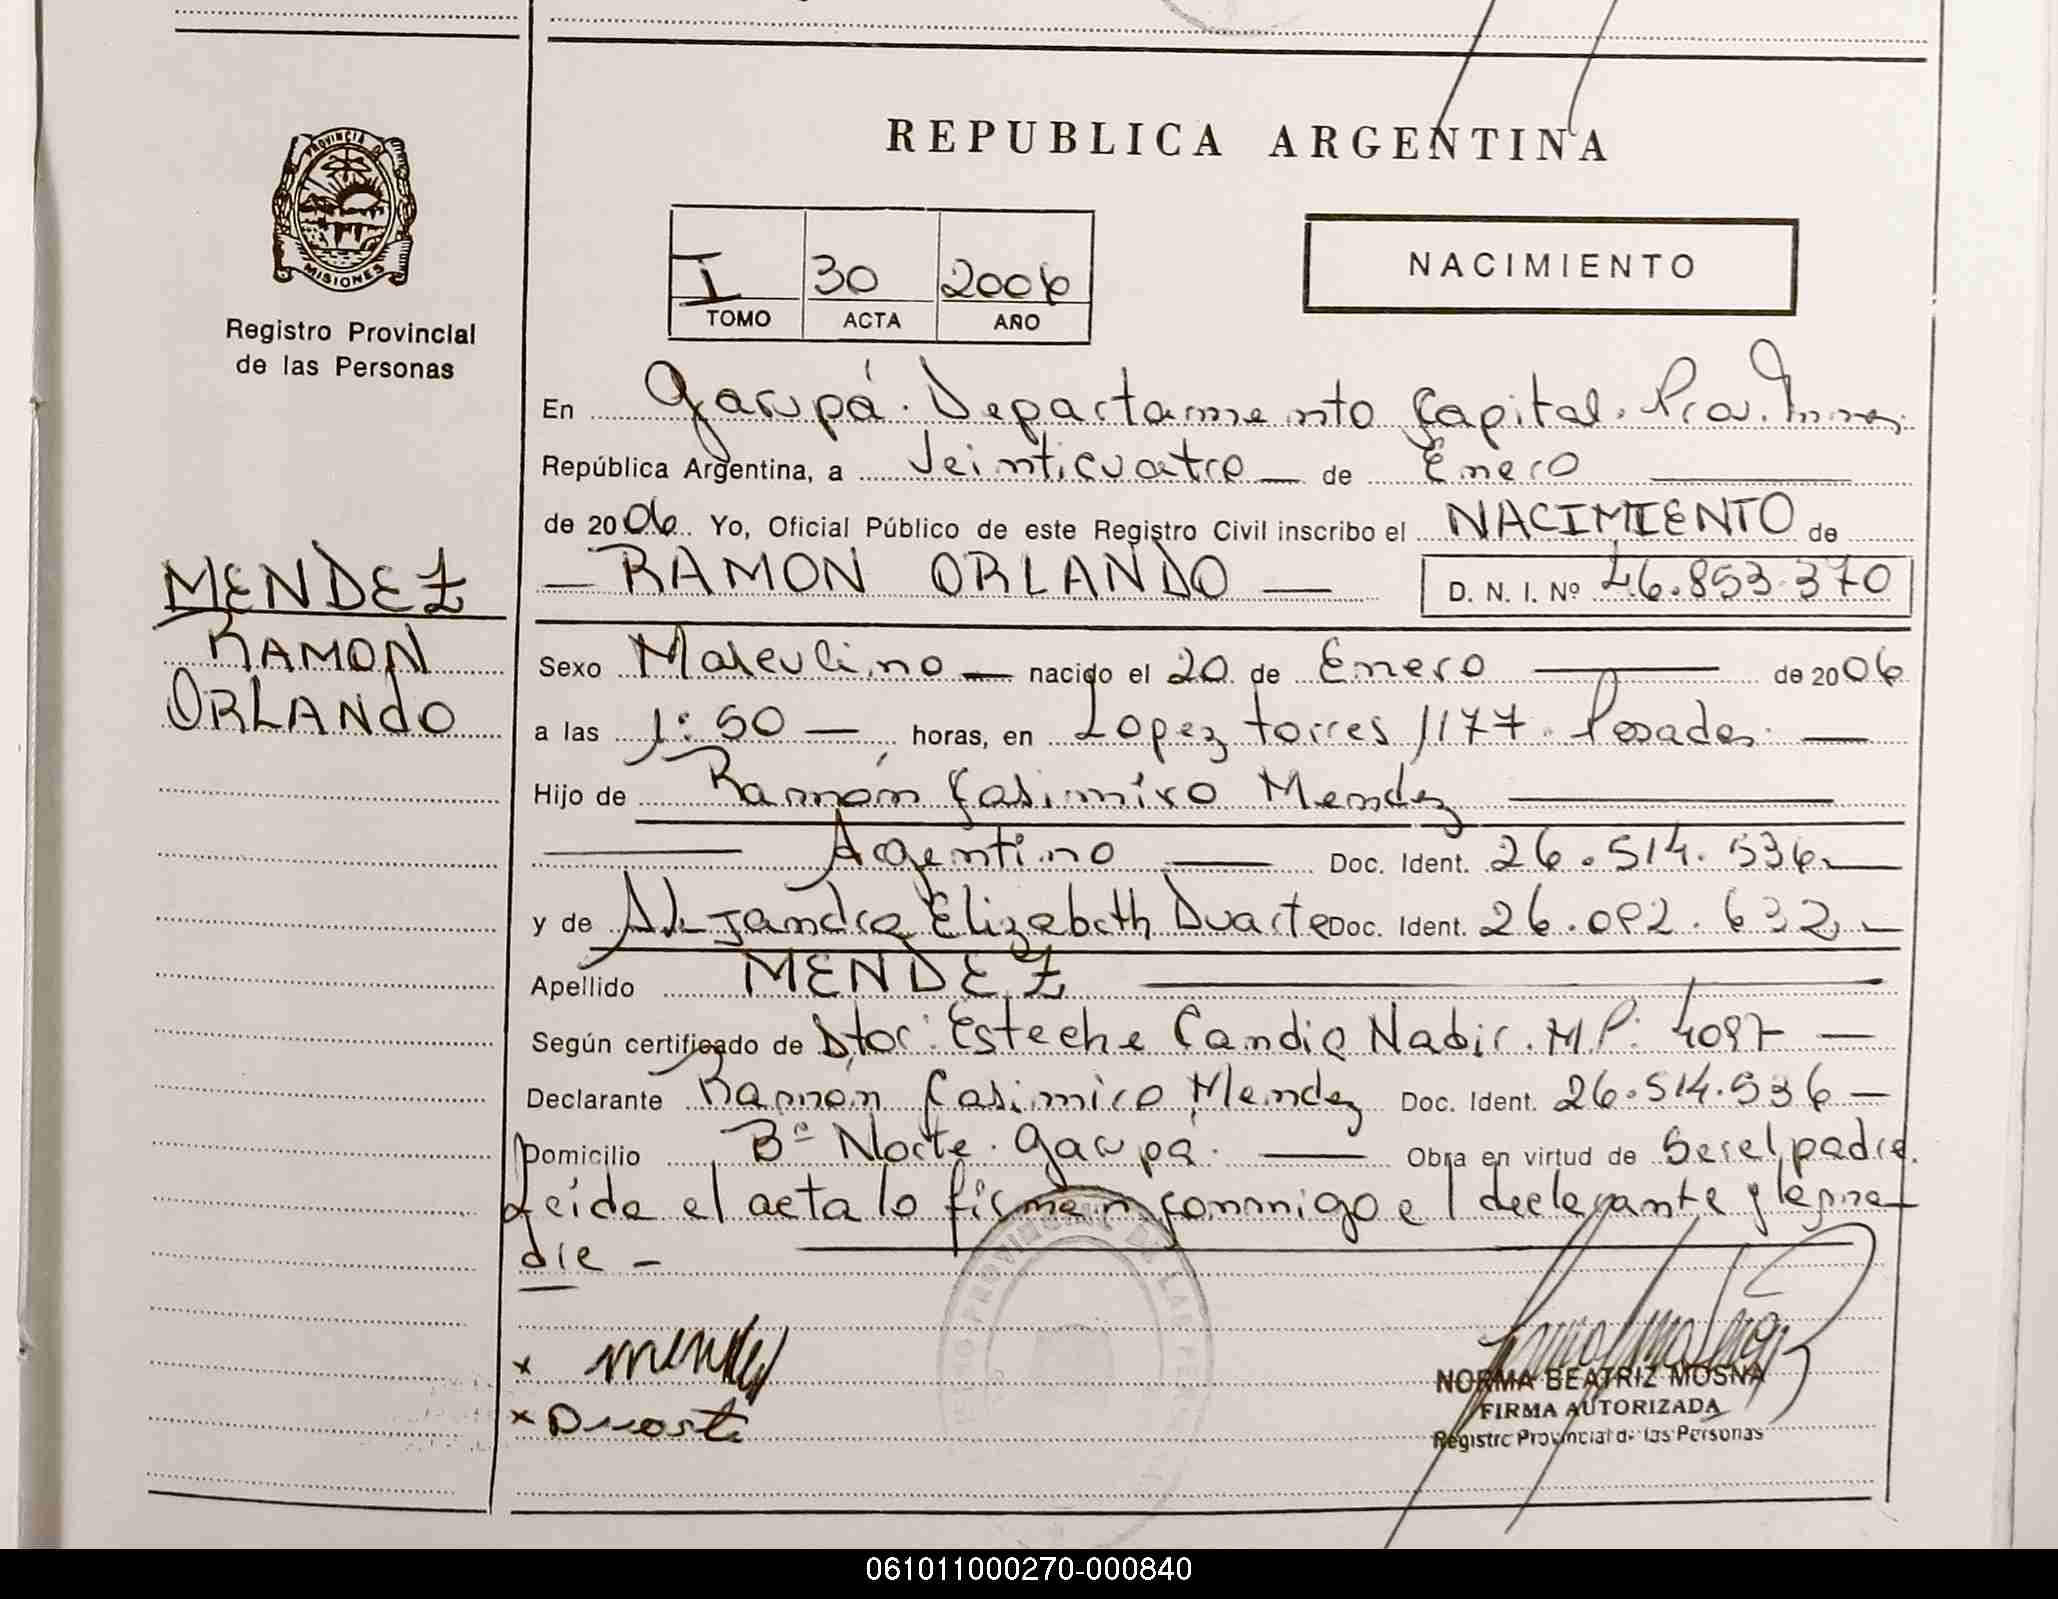 PROVINCIA DE
MISIONES
Registro Provincial
de las Personas
MENDEZ
RAMON
ORLANDO
REPUBLICA ARGENTINA
I 30 2006
TOMO ACTA AÑO
NACIMIENTO
En Garupá. Departamento Capital. Prov. Mnes.
República Argentina, a Veinticuatro — de Enero
de 2006 Yo, Oficial Público de este Registro Civil inscribo el NACIMIENTO de
— RAMON ORLANDO — D. N. I. Nº 46.853.370
Sexo Masculino — nacido el 20 de Enero — de 2006
a las 1:50 — horas, en Lopez torres 1177. Posadas. —
Hijo de Ramón Casimiro Mendez —
— Argentino — Doc. Ident. 26.514.536 —
y de Alejandra Elizabeth Duarte Doc. Ident. 26.092.632 —
Apellido MENDEZ —
Según certificado de Dtor: Esteche Candia Nadir. M.P: 4097 —
Declarante Ramón Casimiro Mendez Doc. Ident. 26.514.536 —
Domicilio Bº Norte. Garupá. — Obra en virtud de Ser el padre.
Leída el acta lo firman conmigo el declarante y la ma-
dre —
x Mendez
x Duarte
NORMA BEATRIZ MOSNA
FIRMA AUTORIZADA
Registro Provincial de las Personas
061011000270-000840